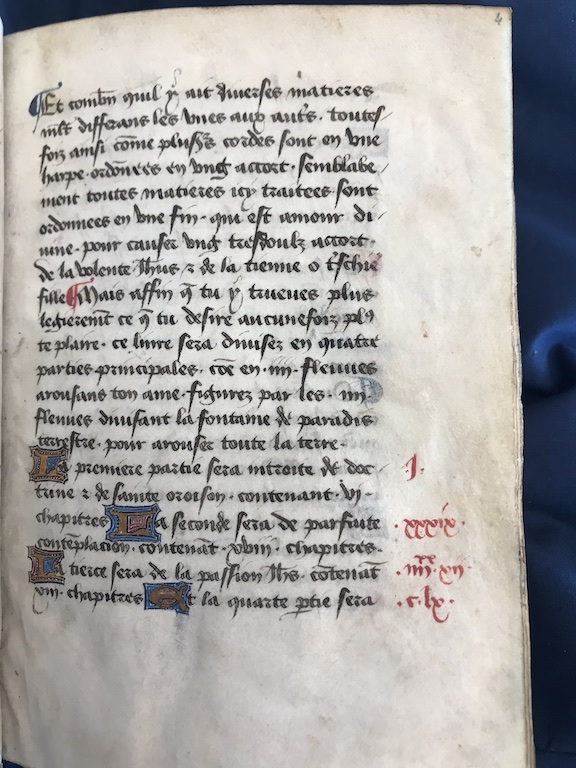 4
Et combñ quil y ait diuerses matieres
mlt differans les vnes aux autˢ. toutes
foiz ainsi cõme plusˢˢ cordes sont en vne
harpe ordonnees en vng accort. semblabe
ment toutes matieres icy traitees sont
ordonnees en vne fin. qui est amour di
uine. pour causer vng tresdoulz accort.
de la volente Jh̃us ⁊ de la tienne o tˢchie
fille Mais affin q̃ tu y trueues plus
legierem̃t ce q̃ tu desire aucunefoiz plꝰ
te plaire. ce liure sera diuisez en quatre
parties principales. cõe en .iiii. fleuues
arousans ton ame. figurez par les .iiii.
fleuues diuisant la fontaine de paradis
terrestre. pour arouser toute la terre.
La premiere partie sera introite de doc
trine ⁊ de sainte oroison. contenant .vi.
chapitres La seconde sera de parfaite
contẽplacion. contenãt .xviii. chapitres.
La tierce sera de la passion Jh̃s. cõtenãt
xiii. chapitres Et la quarte ꝑtie sera
.J.
.xxxix.
.iiii.xx.xii.
.c.lx.